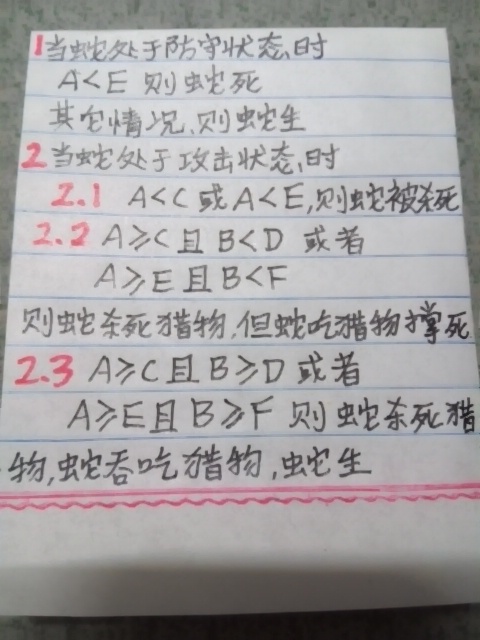 1当蛇处于防守状态,时
A<E 则蛇死
其它情况,则蛇生
2当蛇处于攻击状态,时
2.1 A<C 或A<E,则蛇被杀死
2.2 A≥C且 B<D 或者
A≥E且B<F
则蛇杀死猎物,但蛇吃猎物撑死
2.3 A≥C且B≥D或者
A≥E且B≥F 则蛇杀死猎
物,蛇吞吃猎物,蛇生